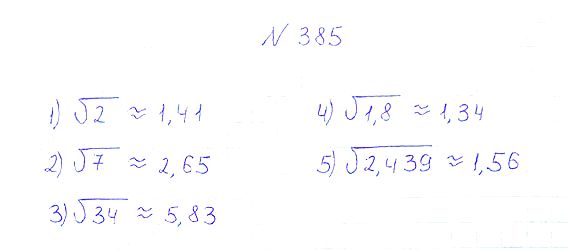 № 385
1) √2 ≈ 1,41
2) √7 ≈ 2,65
3) √34 ≈ 5,83
4) √1,8 ≈ 1,34
5) √2,439 ≈ 1,56